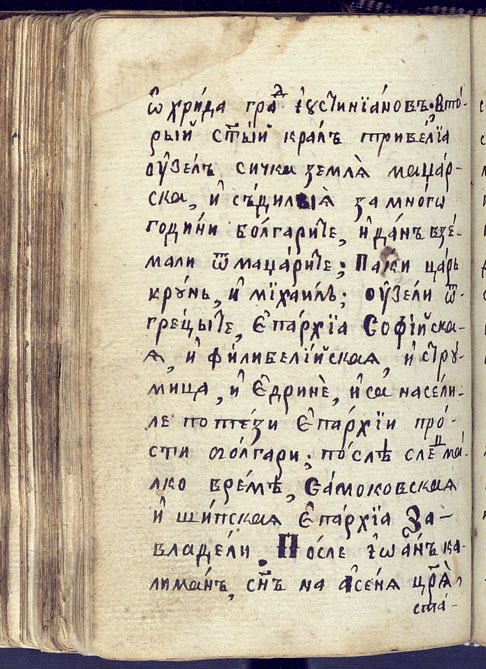 ѡ҆хри́да гра́д і҆ꙋстинїа́новъ: вто́-
рый ст҃ый кра́лъ тривелїа
ѹ҆зе́лъ сичка землѧ̀ маџар-
ска, и҆ сѣдилїѧ̀ за мно́гѡ
години болгарите, и҆ да́нь взе́-
мали ѿ маџа́рите; Паки ца́рь
кру́нь, и҆ мїхаи́лъ; ѹ҆зе́ли ѿ
гре́цыте, Є҆па́рхїа Софі́йска-
ѧ, и҆ фи́либелі́йскаѧ, и҆ стру́-
мица, и҆ Є҆́дрине̏, и҆ са насели́-
ле по те́зи Є҆па́рхїи про́-
сти болгари; по́слѣ слѣ ма́-
лко вре́мѣ, Са́моковскаѧ
и҆ щи́пскаѧ Є҆па́рхїа За-
владе́ли. По́сле і҆ѡа́нъ ка-
лима́нъ, сн҃ъ на а҆се́нѧ цр҃ѧ̀,
ста́-